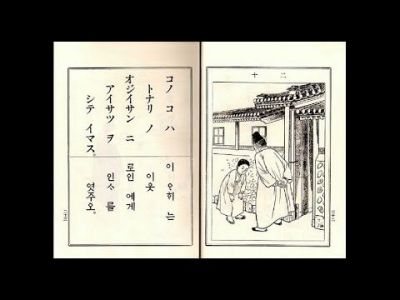 十二
コノ コ ハ
トナリ ノ
オジイサン ニ
アイサツ ヲ
シテ イマス。
이 ᄋᆞ히 는
이웃
로인 에게
인ᄉᆞ 를
엿주오.